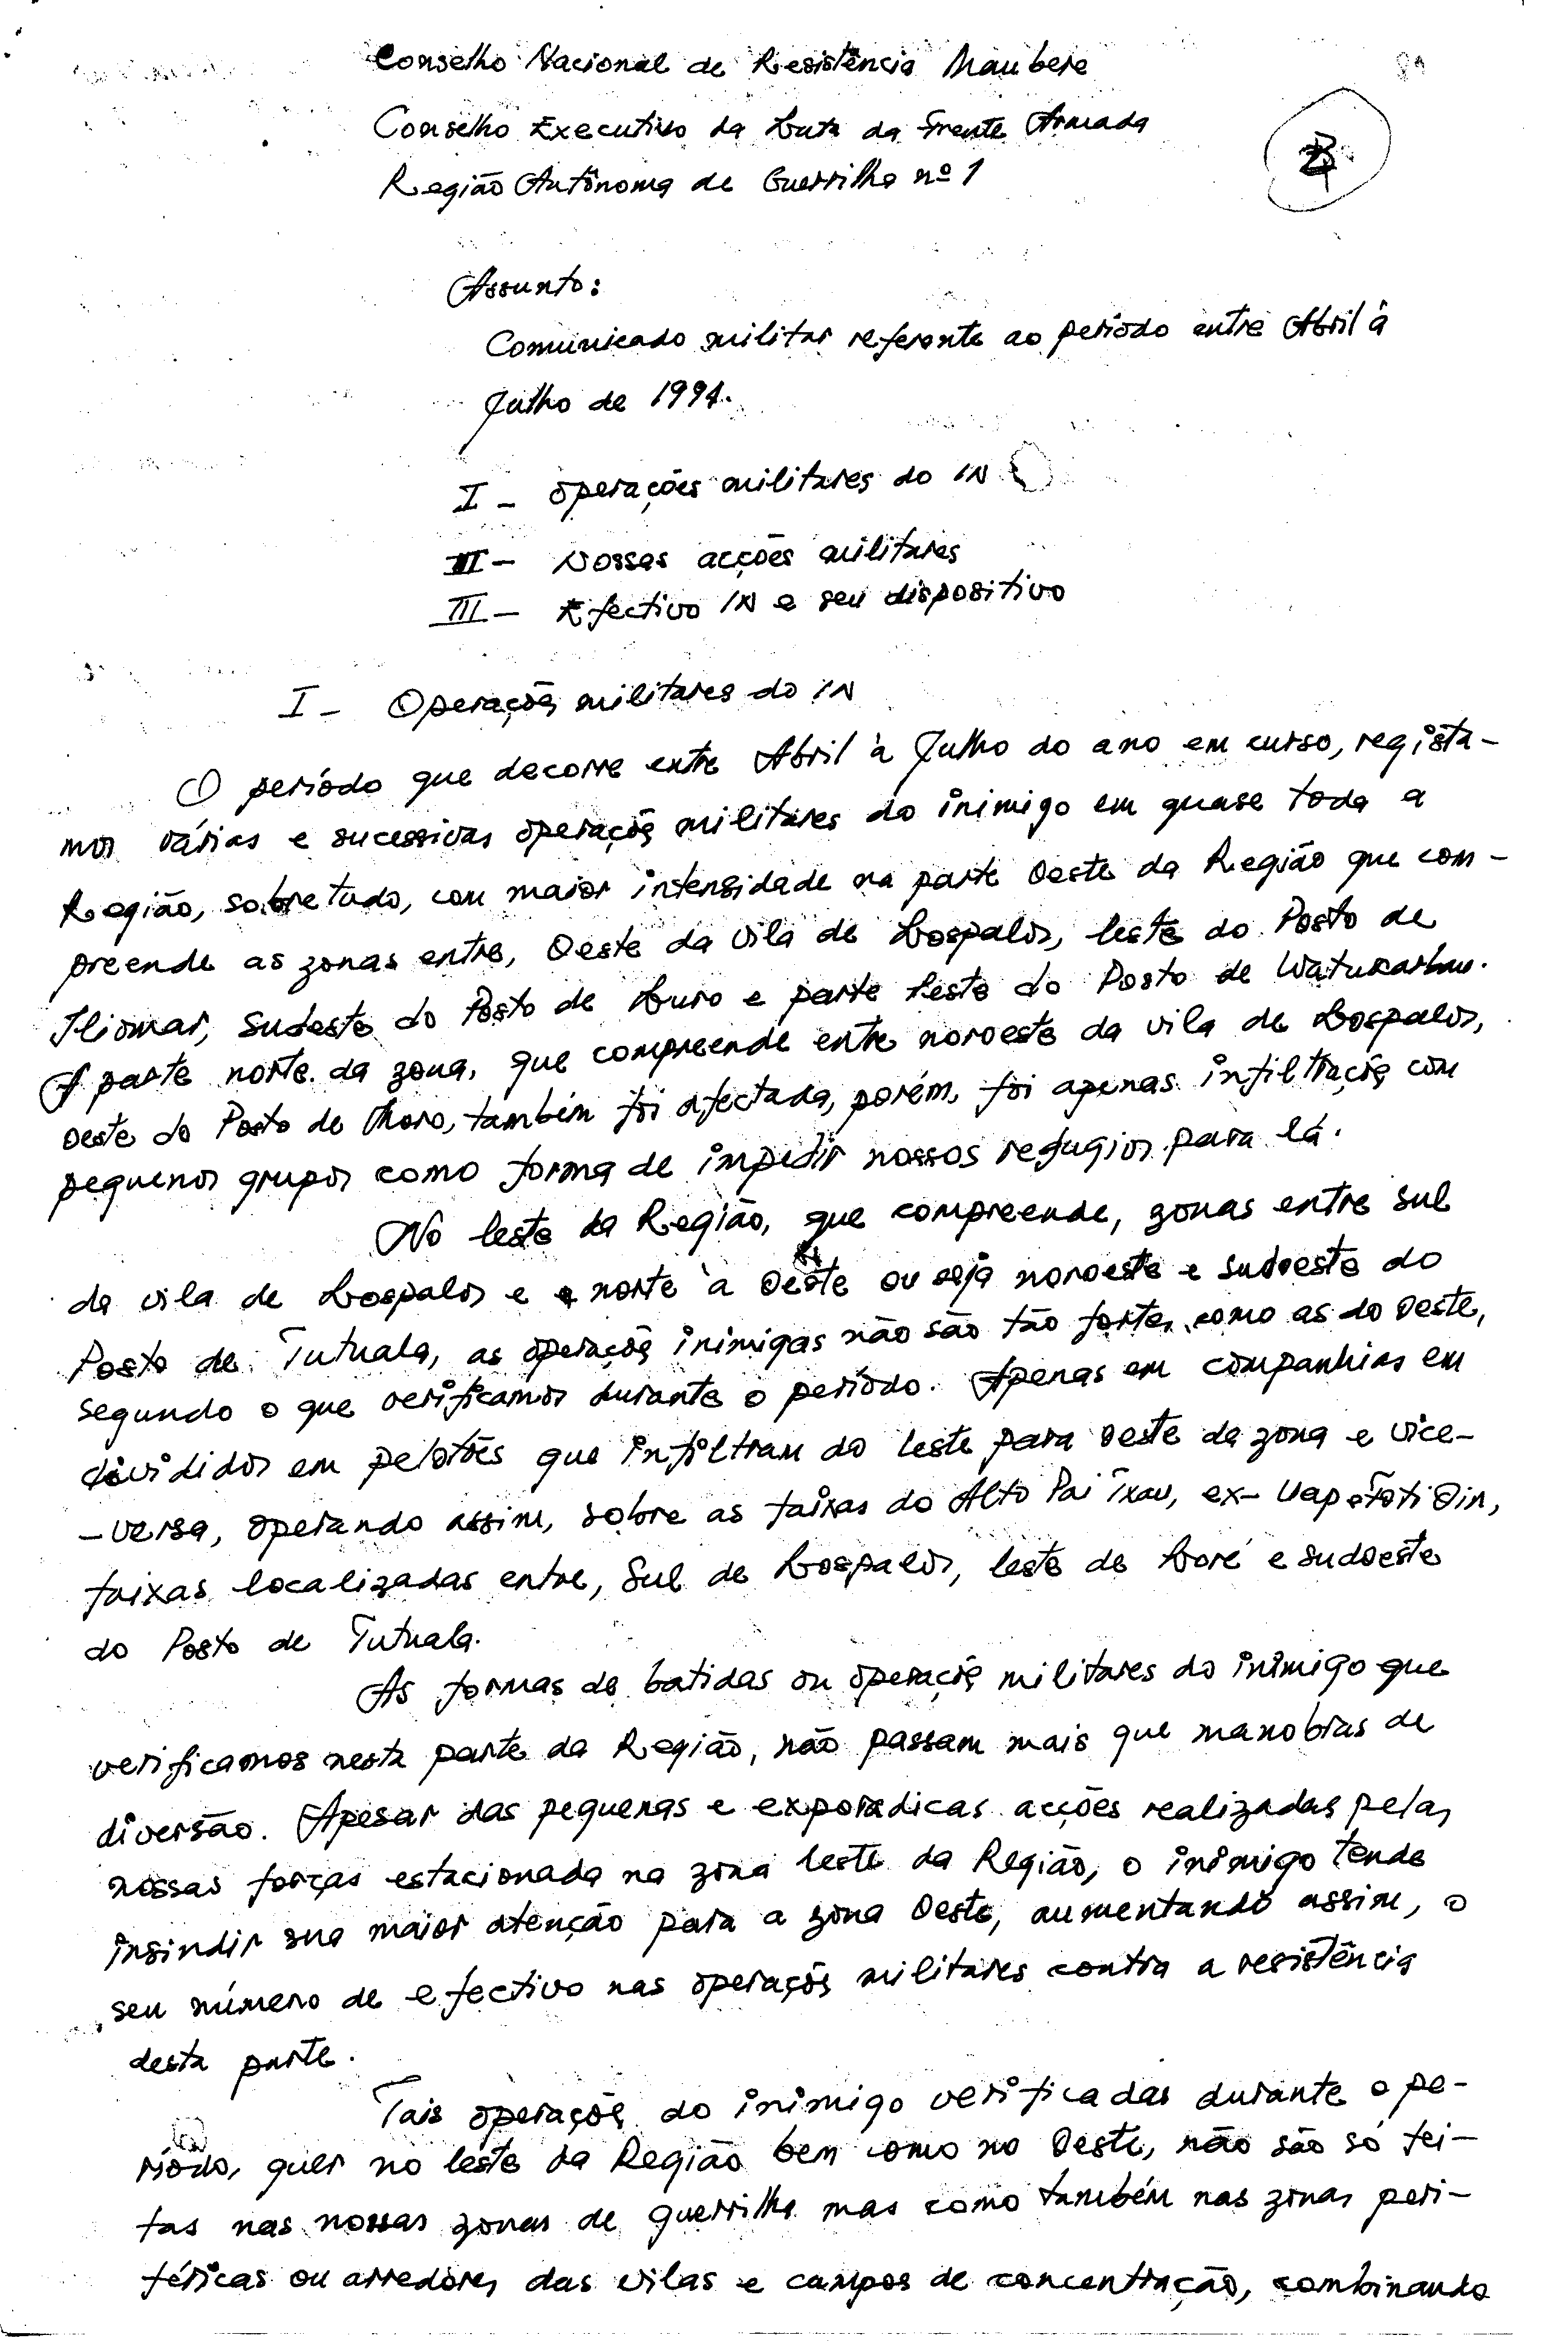 Conselho Nacional de Resistência Maubere
Conselho Executivo da Luta da Frente Armada
Região Autônoma de Guerrilha nº 1
Assunto:
Comunicado militar referente ao período entre Abril à
Julho de 1994.
I - operações militares do IN
II - Nossas acções militares
III - Efectivo IN e seu dispositivo
I - Operaçoẽs militares do IN
O período que decorre entre Abril à Julho do ano em curso, regista-
mos várias e sucessivas operaçoẽs militares do inimigo em quase toda a
Região, sobretudo, com maior intensidade na parte Oeste da Região que com-
preende as zonas entre, Oeste da vila de Lospalos, leste do Posto de
Iliomar, sudeste do Posto de Luro e parte leste do Posto de Watukarbau.
A parte norte da zona, que compreende entre noroeste da vila de Lospalos,
oeste do Posto de Moro, também foi afectada, porém, foi apenas infiltraçoẽs com
pequenos grupos como forma de impedir nossos refugios para lá.
No leste da Região, que compreende, zonas entre sul
da vila de Lospalos e norte à Oeste ou seja noroeste e sudoeste do
Posto de Tutuala, as operaçoẽs inimigas não são tão fortes como as do Oeste,
segundo o que verificamos durante o período. Apenas em companhias em
divididos em pelotões que infiltram do leste para oeste da zona e vice-
-versa, operando assim, sobre as faixas do Alto Pai Ixau,
faixas localizadas entre, Sul de Lospalos, leste de Loré e sudoeste
do Posto de Tutuala.
As formas de batidas ou operaçoẽs militares do inimigo que
verificamos nesta parte da Região, não passam mais que manobras de
diversão. Apesar das pequenas e exporadicas acções realizadas pelas
nossas forças estacionada na zona leste da Região, o inimigo tende
insindir sua maior atenção para a zona Oeste, aumentando assim, o
seu número de efectivo nas operaçoẽs militares contra a resistência
desta parte.
Tais operaçoẽs do inimigo verificadas durante o pe-
ríodo, quer no leste da Região bem como no Oeste, não são só fei-
tas nas nossas zonas de guerrilha mas como também nas zonas peri-
féricas ou arredores das vilas e campos de concentração, combinando